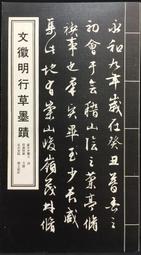 永和九年歲在癸丑暮春之
初會于會稽山陰之蘭亭脩
禊事也羣賢畢至少長咸
集此地有崇山峻嶺茂林脩
文徵明行草墨蹟